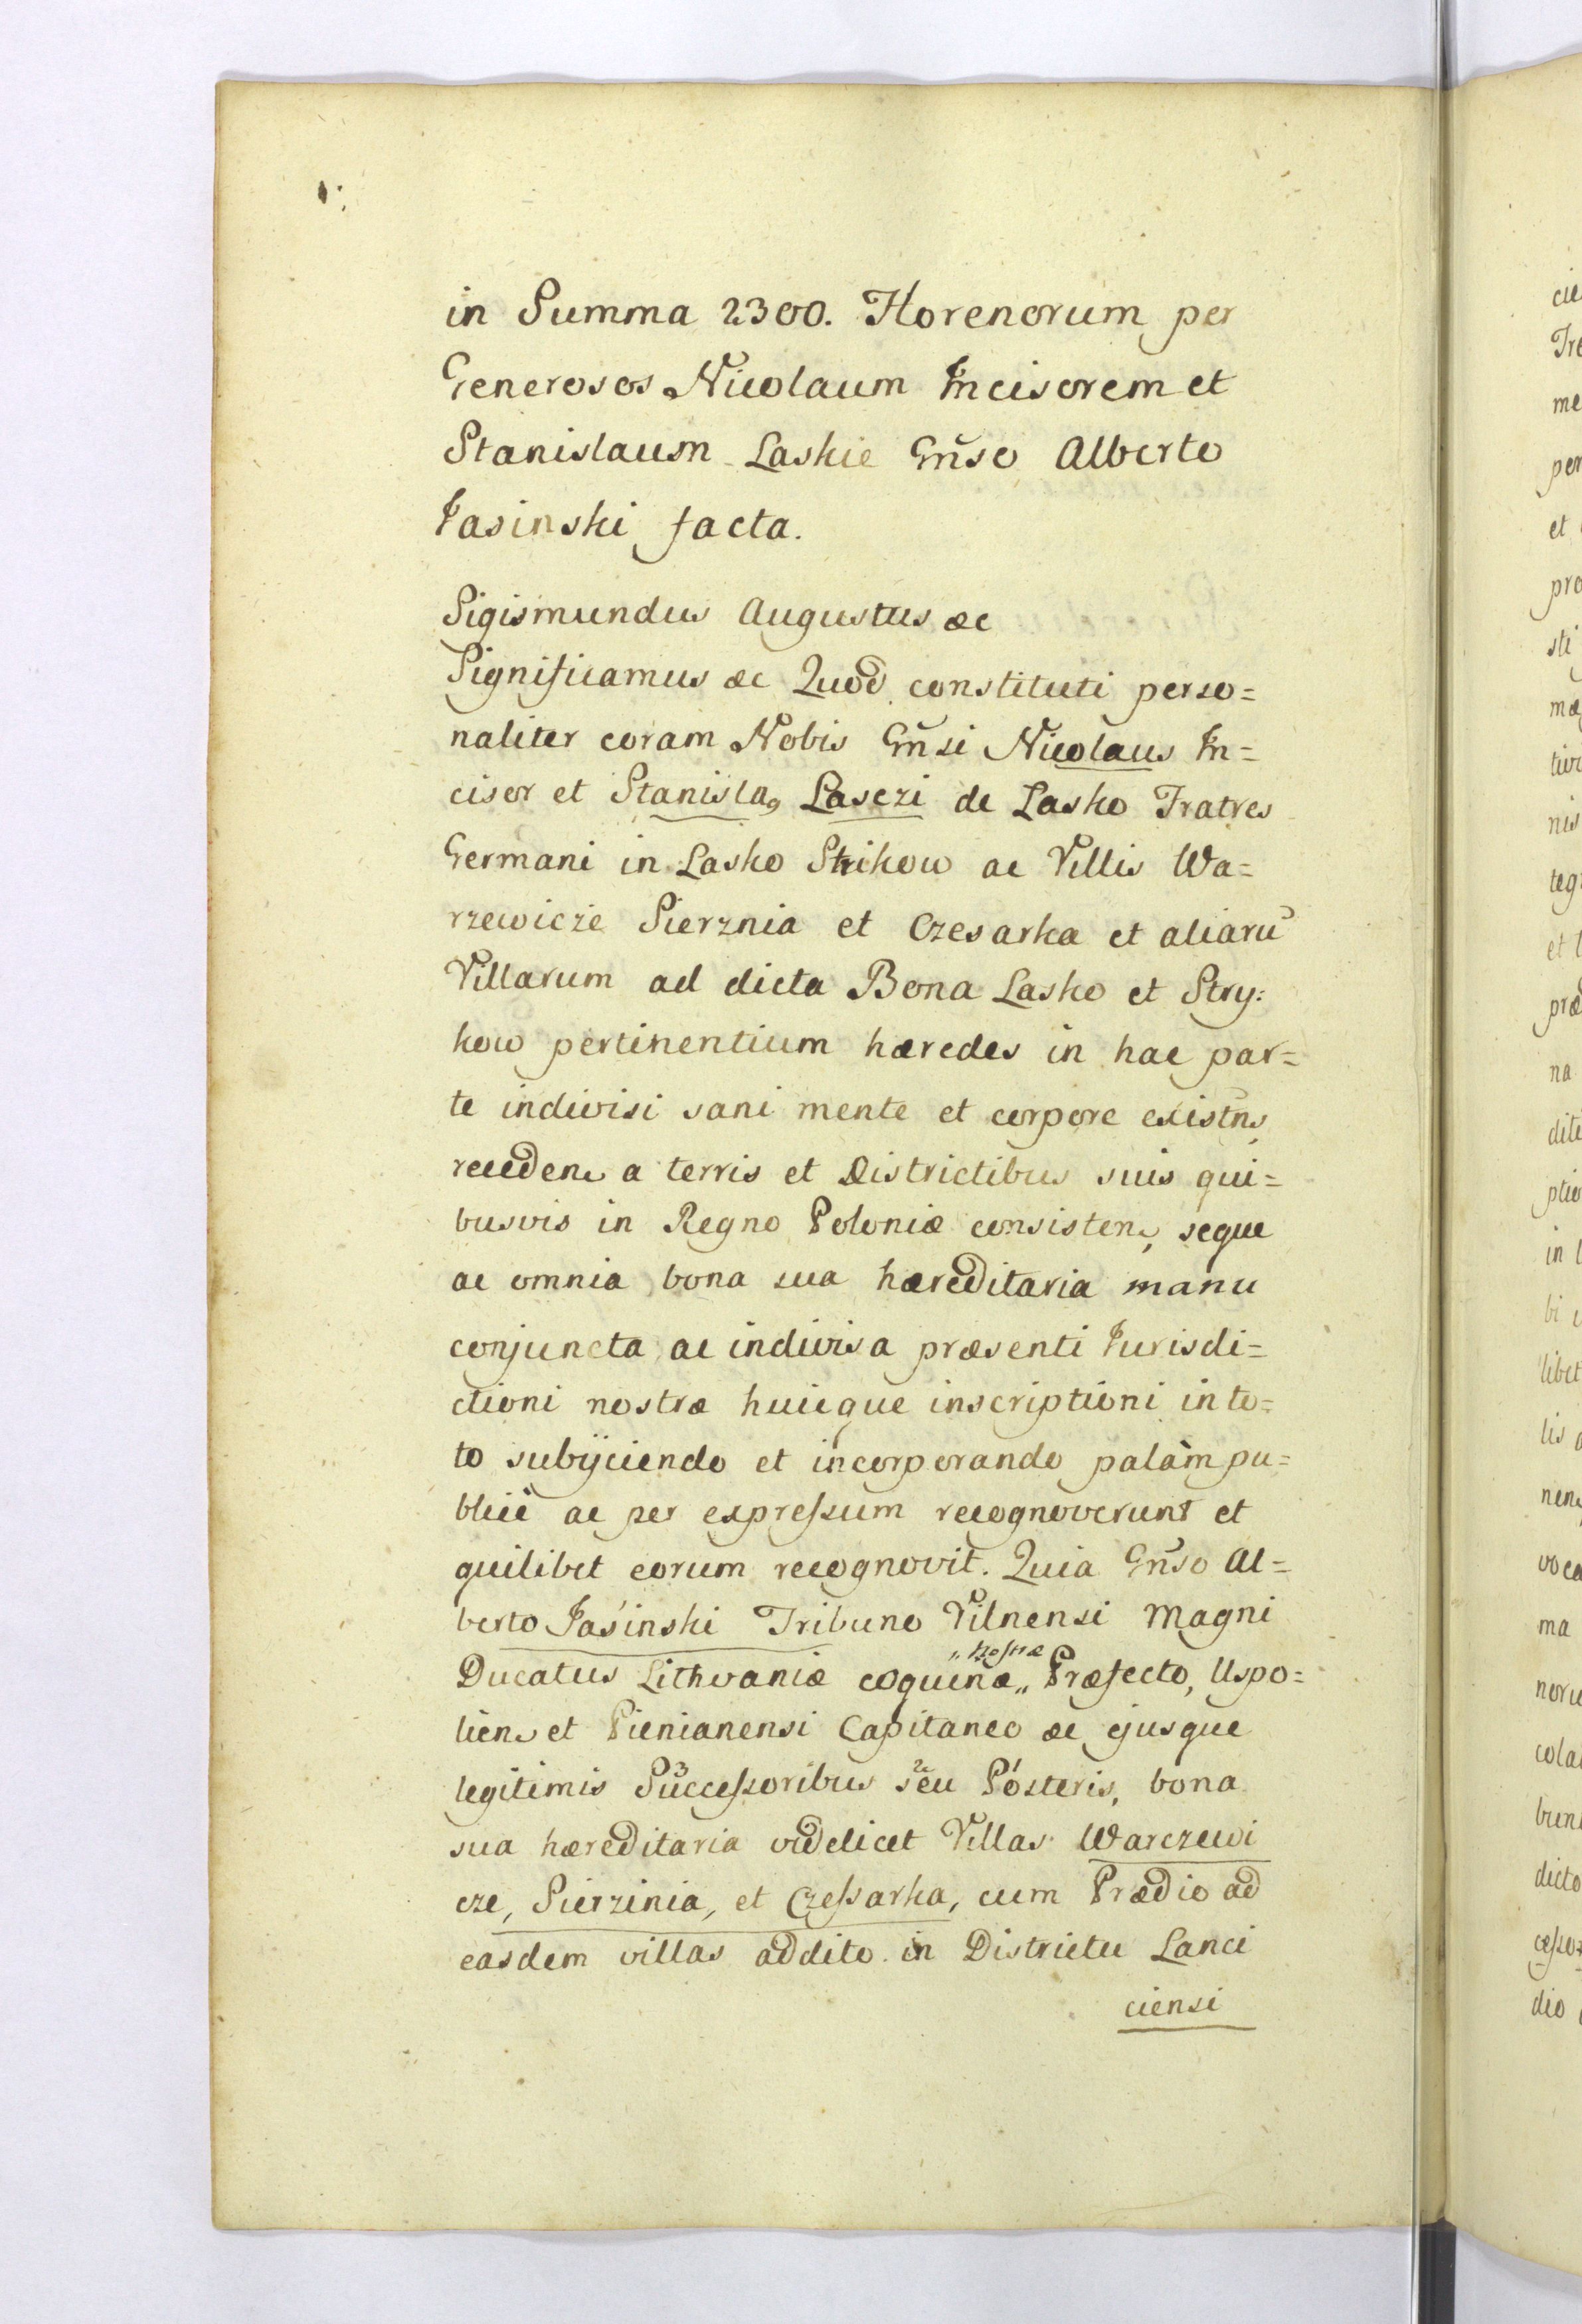 in Summa 2300. Florenorum per
Generosos Nicolaum Incisorem et
Stanislaum Laskie Gnso Alberto
Jasinski facta.
Sigismundus Augustus &c
Significamus &c Quod constituti perso=
naliter coram Nobis Gnsi Nicolaus In=
cisor et Stanisla9 Lasczi de Lasko Fratres
Germani in Lasko Strikow ac Villis Wa=
rzewicze Sierznia et Czesarka et aliarū
Villarum ad dicta Bona Lasko et Stry:
kow pertinentium hæredes in hac par=
te indivisi sani mente et corpore existn,
receden, a terris et Districtibus suis qui=
busvis in Regno Poloniæ consisten, seque
ac omnia bona sua hæreditaria manu
conjuncta ac indivisa præsenti Jurisdi=
ctioni nostræ huicque inscriptioni in to=
to subijciendo et incorporando palàm pu=
blicè ac per expressum recognoverunt et
quilibet eorum recognovit. Quia Gnso Al=
berto Jasinski Tribuno Vilnensi Magni
„nostræ
Ducatus Lithvaniæ coquinæ„ Præfecto, Uspo=
lien, et Pienianensi Capitaneo ac ejusque
legitimis Successoribus 3 seu 2 Posteris 1, bona
sua hæreditaria videlicet Villas Warczewi
cze, Sierzinia, et Czessarka, cum Prædio ad
easdem villas addito in Districtu Lanci
ciensi